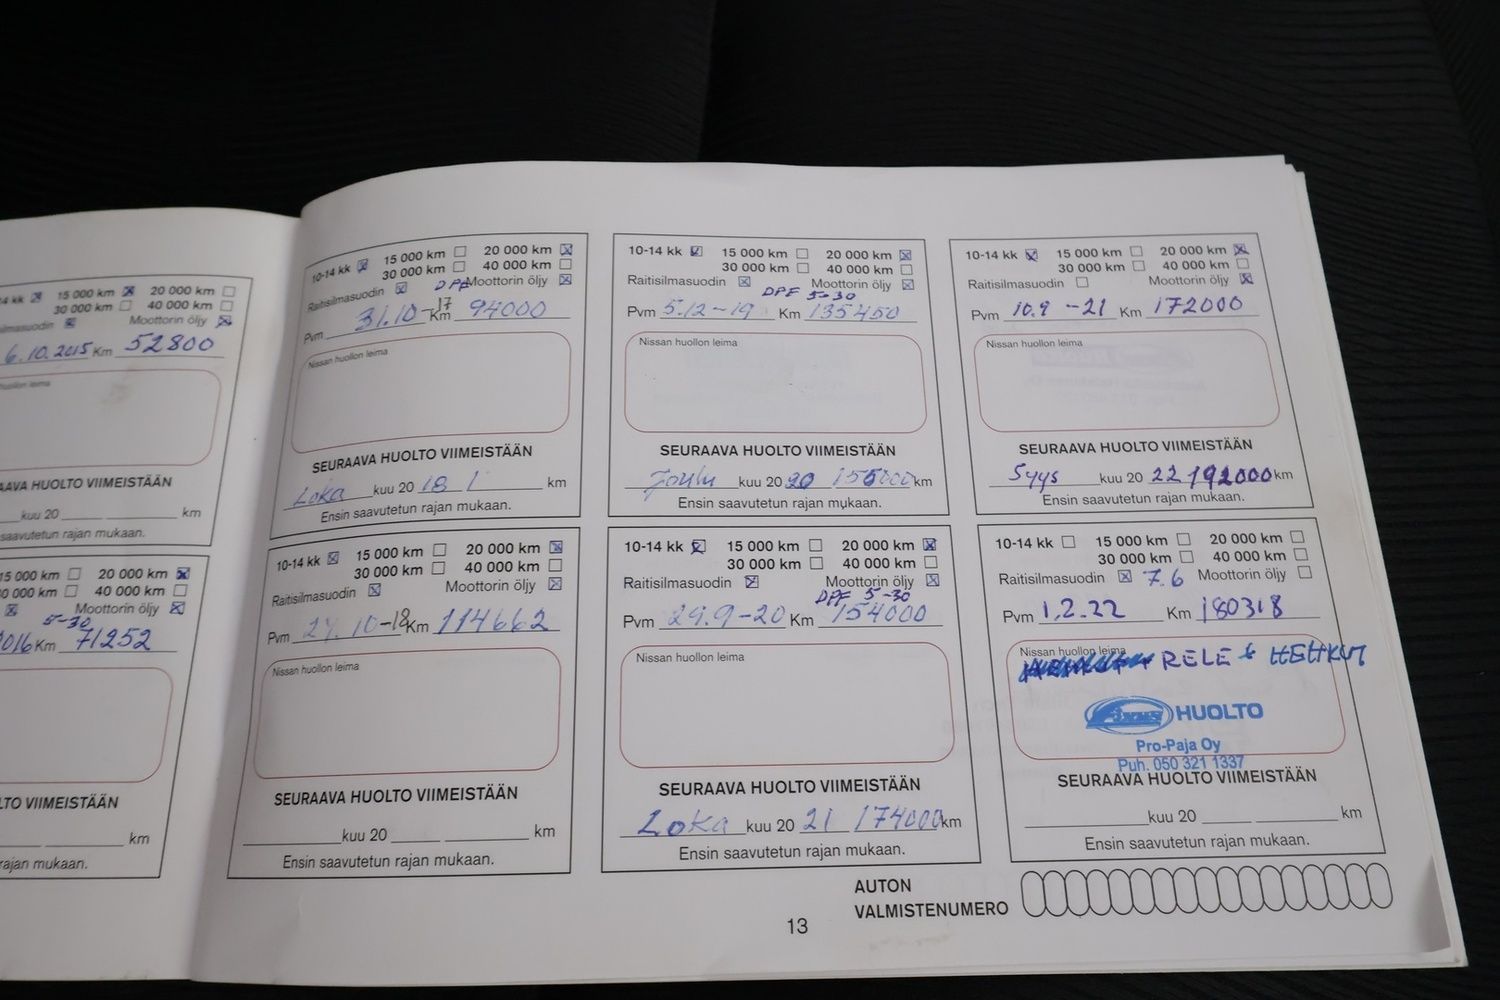 4 kk 15 000 km 20 000 km
30 000 km 40 000 km
ilmasuodin Moottorin öljy
6.10.2015 Km 52800
huollon leima
AAVA HUOLTO VIIMEISTÄÄN
kuu 20 km
saavutetun rajan mukaan.
15 000 km 20 000 km
30 000 km 40 000 km
Moottorin öljy
5-30
2016 Km 71252
LTO VIIMEISTÄÄN
km
rajan mukaan.
10-14 kk 15 000 km 20 000 km
30 000 km 40 000 km
Raitisilmasuodin DPF Moottorin öljy
Pvm 31.10-17 Km 94000
Nissan huollon leima
SEURAAVA HUOLTO VIIMEISTÄÄN
Loka kuu 20 18 / km
Ensin saavutetun rajan mukaan.
10-14 kk 15 000 km 20 000 km
30 000 km 40 000 km
Raitisilmasuodin Moottorin öljy
Pvm 24.10-18 Km 114662
Nissan huollon leima
SEURAAVA HUOLTO VIIMEISTÄÄN
kuu 20 km
Ensin saavutetun rajan mukaan.
10-14 kk 15 000 km 20 000 km
30 000 km 40 000 km
Raitisilmasuodin Moottorin öljy
DPF 5-30
Pvm 5.12-19 Km 135450
Nissan huollon leima
SEURAAVA HUOLTO VIIMEISTÄÄN
Joulu kuu 20 20 155000 km
Ensin saavutetun rajan mukaan.
10-14 kk 15 000 km 20 000 km
30 000 km 40 000 km
Raitisilmasuodin Moottorin öljy
DPF 5-30
Pvm 29.9-20 Km 154000
Nissan huollon leima
SEURAAVA HUOLTO VIIMEISTÄÄN
Loka kuu 20 21 174000 km
Ensin saavutetun rajan mukaan.
10-14 kk 15 000 km 20 000 km
30 000 km 40 000 km
Raitisilmasuodin Moottorin öljy
Pvm 10.9 -21 Km 172000
Nissan huollon leima
SEURAAVA HUOLTO VIIMEISTÄÄN
Syys kuu 20 22 192000 km
Ensin saavutetun rajan mukaan.
10-14 kk 15 000 km 20 000 km
30 000 km 40 000 km
Raitisilmasuodin 7.6 Moottorin öljy
Pvm 1.2.22 Km 180318
Nissan huollon leima
RELE + HEHKUT
HUOLTO
Pro-Paja Oy
Puh. 050 321 1337
SEURAAVA HUOLTO VIIMEISTÄÄN
kuu 20 km
Ensin saavutetun rajan mukaan.
AUTON
VALMISTENUMERO
13